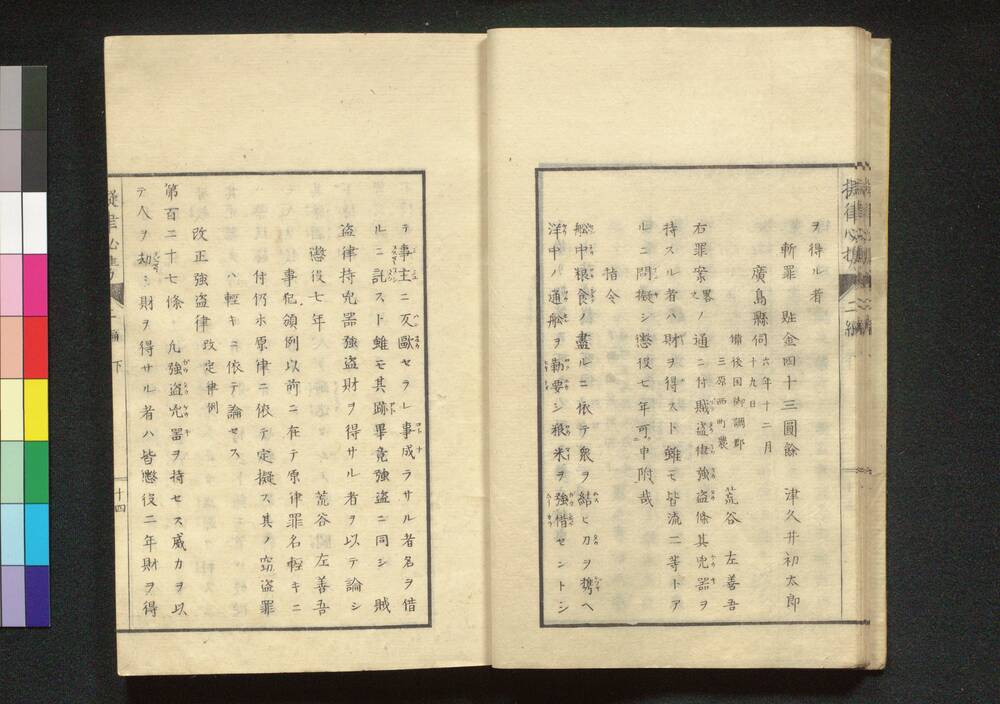 ヲ得ル者
斬罪 贓金四十三圓餘 津久井初太郎
廣島縣伺 六年十二月
十九日
備後国御調郡
三原西町農
荒谷 左善吾
右罪案畧之通ニ付賊盗律強盗條其兇器ヲ
持スル者ハ財ヲ得スト雖モ皆流二等トア
ルニ問擬シ懲役七年可申附哉
指令
舩中粮食ノ盡ルニ依テ衆ヲ結ヒ刀ヲ携ヘ
洋中ノ通舩ヲ劫要シ粮米ヲ強借セントシ
テ事主ニ反毆セラレ事成ラサル者名ヲ借
ルニ託スト雖モ其跡畢竟強盗ニ同シ賊
盗律持兇器強盗財ヲ得サル者ヲ以テ論シ
懲役七年 荒谷 左善吾
事犯頒例以前ニ在テ原律罪名輕キニ
付仍ホ原律ニ依テ定擬ス其ノ窃盗罪
ハ輕キニ依テ論セス
改正強盗律 改定律例
第百二十七條 凡強盗兇器ヲ持セス威力ヲ以
テ人ヲ劫シ財ヲ得サル者ハ皆懲役二年財ヲ得
二編
下
十四